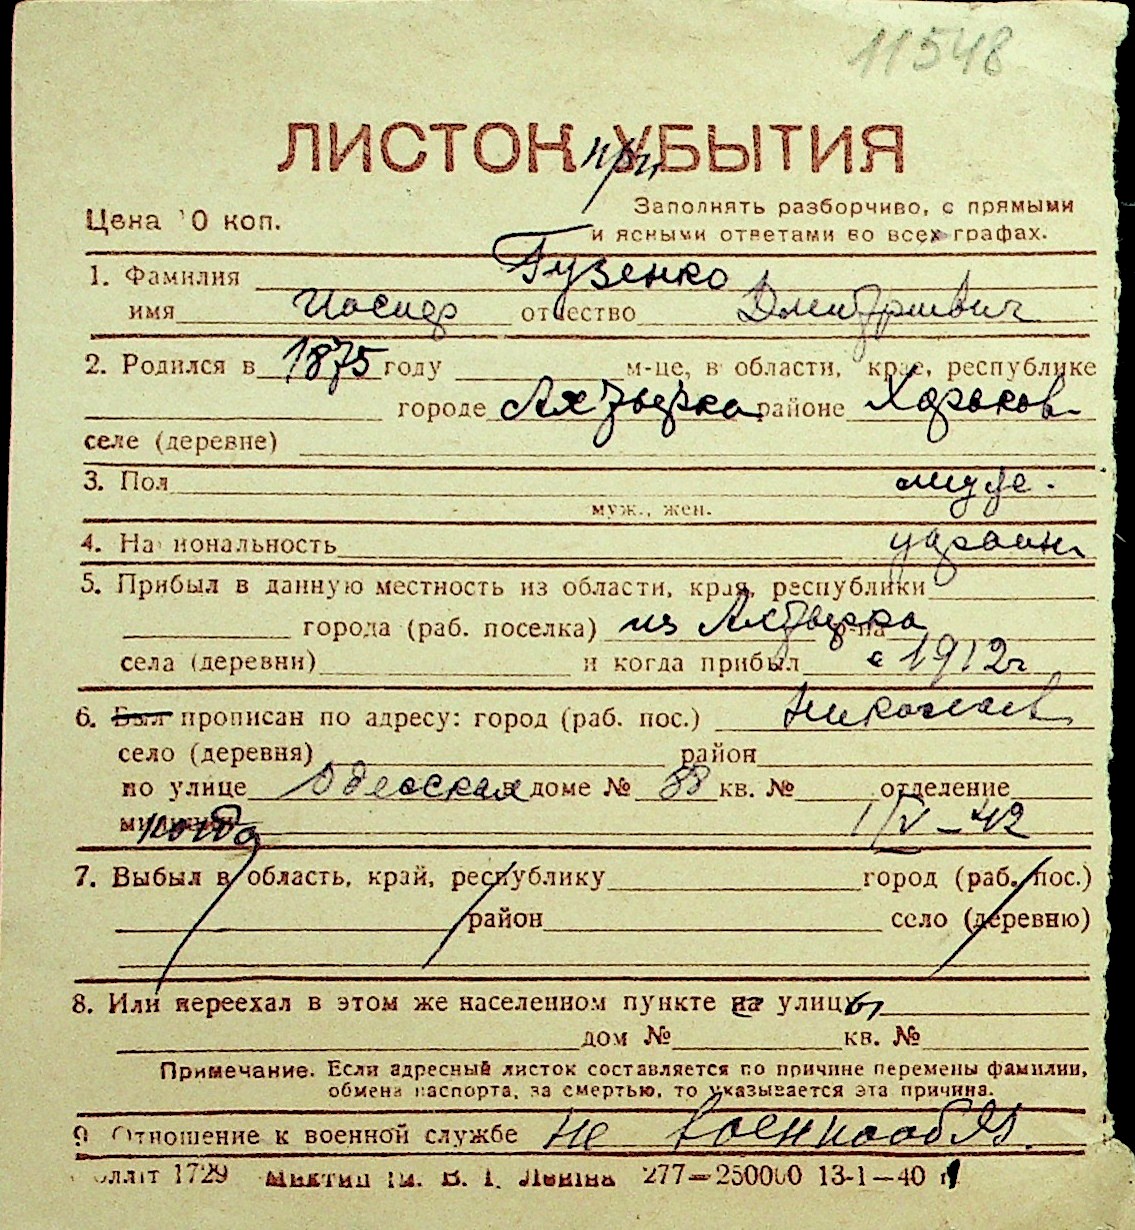 11548
ЛИСТОК УБЫТИЯ
при
Цена 10 коп.
Заполнять разборчиво, с прямыми
и ясными ответами во всех графах.
1. Фамилия Гузенко
имя Иосиф отчество Дмитриевич
2. Родился в 1875 году м-це, в области, крае, республике
городе Ахтырка районе Харьков
селе (деревне)
3. Пол муж.
муж., жен.
4. Национальность украин
5. Прибыл в данную местность из области, края, республики
города (раб. поселка) из Ахтырка р-на
села (деревни) и когда прибыл с 1912 г
6. Был прописан по адресу: город (раб. пос.) Николаев
село (деревня) район
по улице Одесская в доме № 88 кв. № отделение
милиции когда 1/V-42
7. Выбыл в область, край, республику город (раб. пос.)
район село (деревню)
8. Или переехал в этом же населенном пункте из улицы
дом № кв. №
Примечание. Если адресный листок составляется по причине перемены фамилии,
обмена паспорта, за смертью, то указывается эта причина.
9 Отношение к военной службе не военнообяз.
1729 ім. В. І. Леніна 277—250000 13-1—40